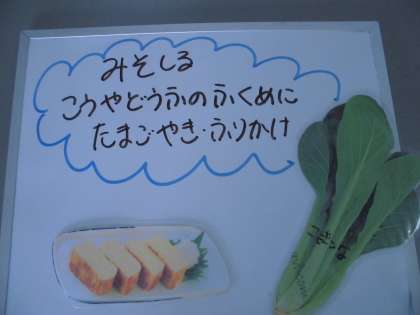 みそしる
こうやどうふのふくめに
たまごやき・ふりかけ